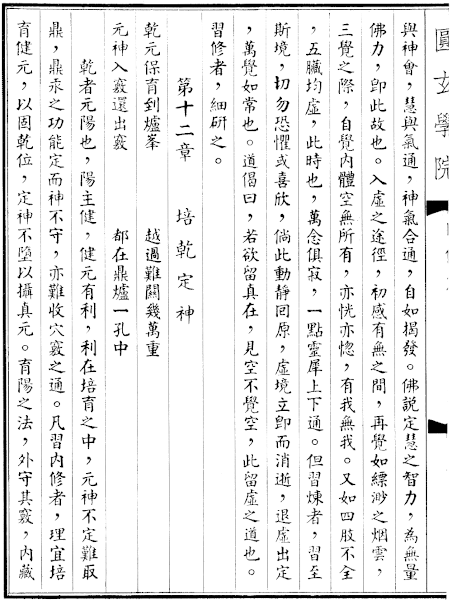 圓玄學院
與神會，慧與氣通，神氣合通，自如揭發。佛說定慧之智力，為無量
佛力，即此故也。入虛之途徑，初感有無之間，再覺如縹渺之烟雲，
三覺之際，自覺內體空無所有，亦恍亦惚，有我無我。又如四肢不全
，五臟均虛，此時也，萬念俱寂，一點靈犀上下通。但習煉者，習至
斯境，切勿恐懼或喜欣，倘此動靜回原，虛境立即而消逝，退虛出定
，萬覺如常也。道偈曰，若欲留真在，見空不覺空，此留虛之道也。
習修者，細研之。
第十二章　培乾定神
乾元保育到爐峯　越過難關幾萬重
元神入竅還出竅　都在鼎爐一孔中
乾者元陽也，陽主健，健元有利，利在培育之中，元神不定難取
鼎，鼎汞之功能定而神不守，亦難收穴竅之通。凡習內修者，理宜培
育健元，以固乾位，定神不墮以攝真元。育陽之法，外守其竅，內藏